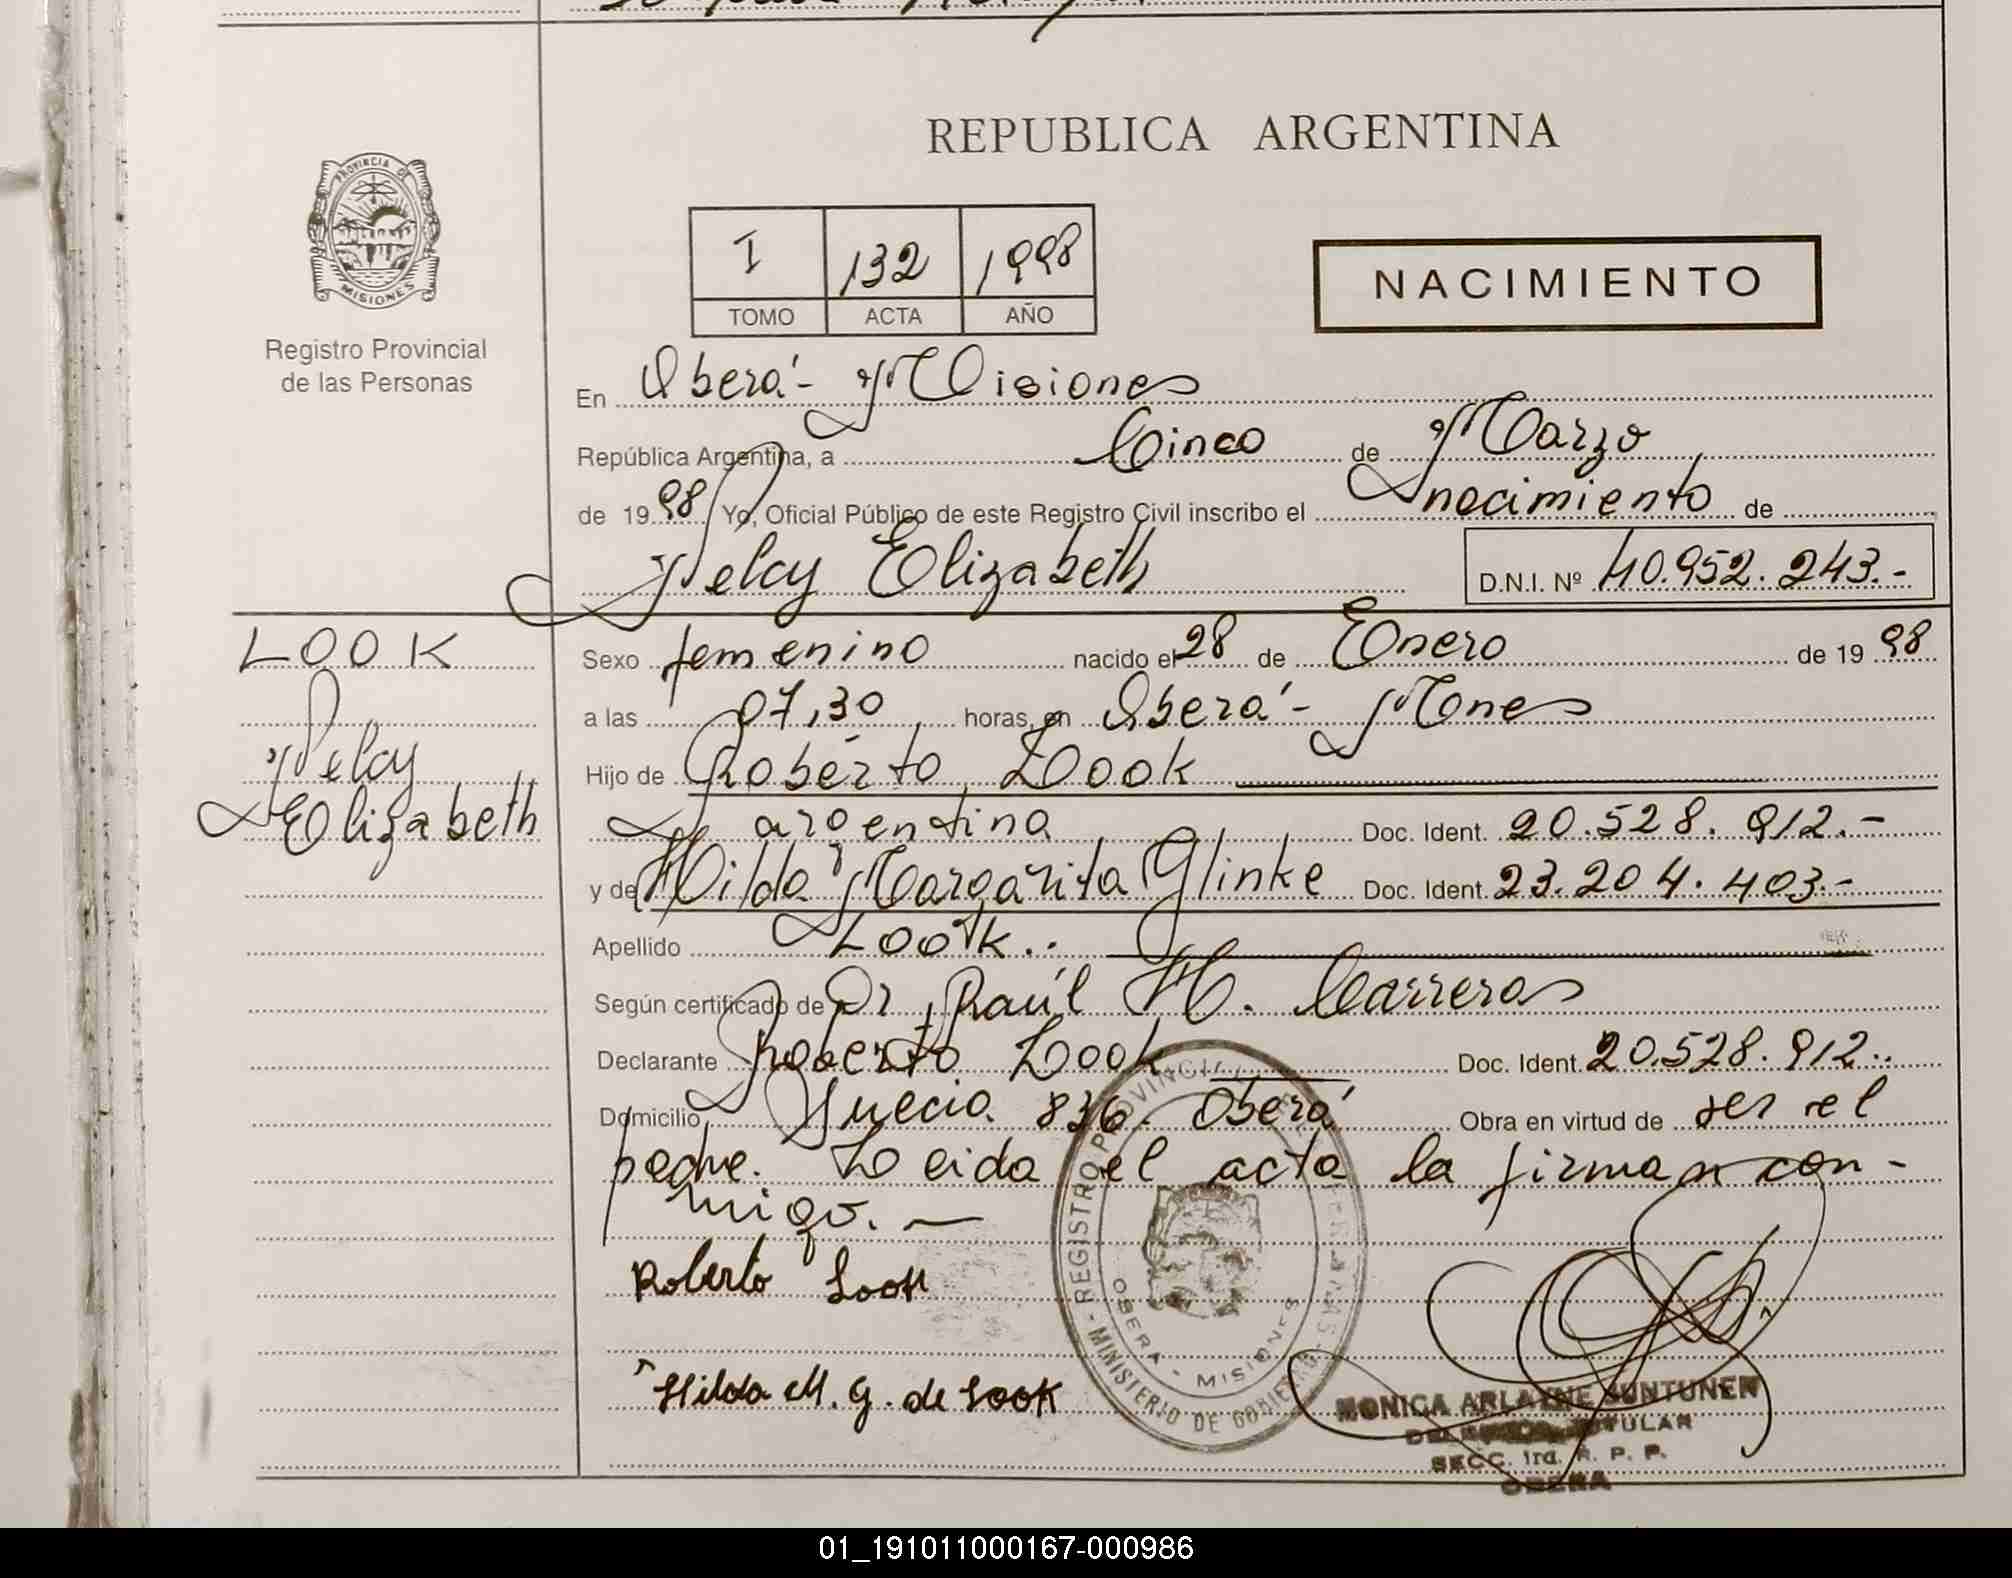 REPUBLICA ARGENTINA
PROVINCIA DE
MISIONES
Registro Provincial
de las Personas
I 132 1998
TOMO ACTA AÑO
NACIMIENTO
En Oberá - Misiones
República Argentina, a Cinco de Marzo
de 1998 Yo, Oficial Público de este Registro Civil inscribo el nacimiento de
Nelcy Elizabeth D.N.I. Nº 40.952.243.-
LOOK
Nelcy
Elizabeth
Sexo femenino nacido el 28 de Enero de 1998
a las 07,30 horas, en Oberá - Mnes
Hijo de Roberto Look
argentina Doc. Ident. 20.528.912.-
y de Hilda Margarita Glinke Doc. Ident. 23.204.403.-
Apellido LOOK.-
Según certificado de Dr. Raúl H. Carreras
Declarante Roberto Look Doc. Ident. 20.528.912..
Domicilio Suecia 836. Oberá Obra en virtud de ser el
padre. Leida el acta la firman con-
migo. —
Roberto Look
Hilda M. G. de Look
REGISTRO PROVINCIAL DE LAS PERSONAS - MINISTERIO DE GOBIERNO
OBERA - MISIONES
MONICA ARLAYNE SUNTUNEN
TITULAR
SECC. 1ra. R. P. P.
OBERA
01_191011000167-000986